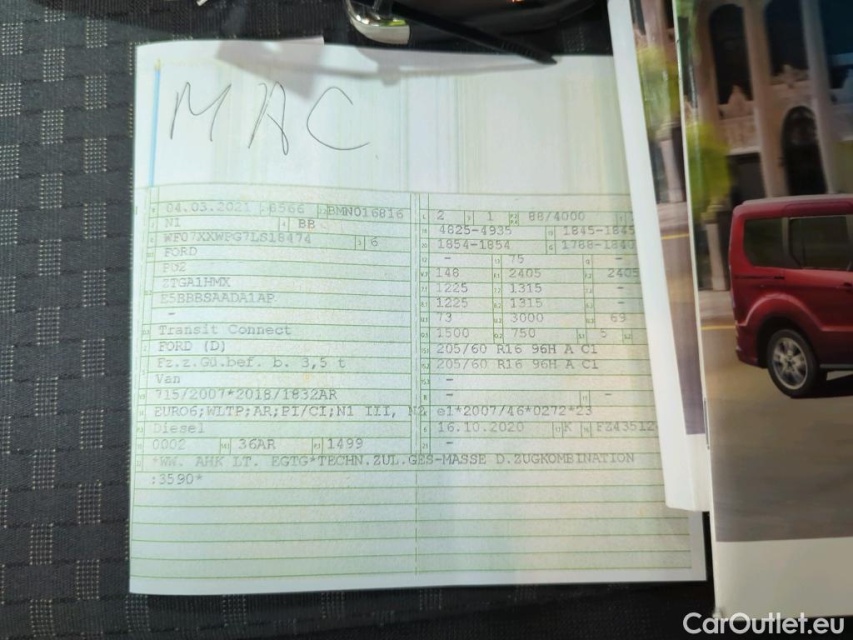 MAC
04.03.2021 6566 BMN016816
N1 BB
WF07XXWPG7LS18474 6
FORD
PU2
ZTGA1HMX
E5BBBSAADA1AP
-
Transit Connect
FORD (D)
Fz.z.Gü.bef. b. 3,5 t
Van
715/2007*2018/1832AR
EURO6;WLTP;AR;PI/CI;N1 III, N2
Diesel
0002 36AR 1499
*WW. AHK LT. EGTG*TECHN.ZUL.GES-MASSE D.ZUGKOMBINATION
:3590*
2 1 88/4000
4825-4935 1845-1845
1854-1854 1788-1840
- 75 -
148 2405 2405
1225 1315 -
1225 1315 -
73 3000 69
1500 750 5 -
205/60 R16 96H A C1
205/60 R16 96H A C1
-
-
e1*2007/46*0272*23
16.10.2020 K FZ43512
-
CarOutlet.eu